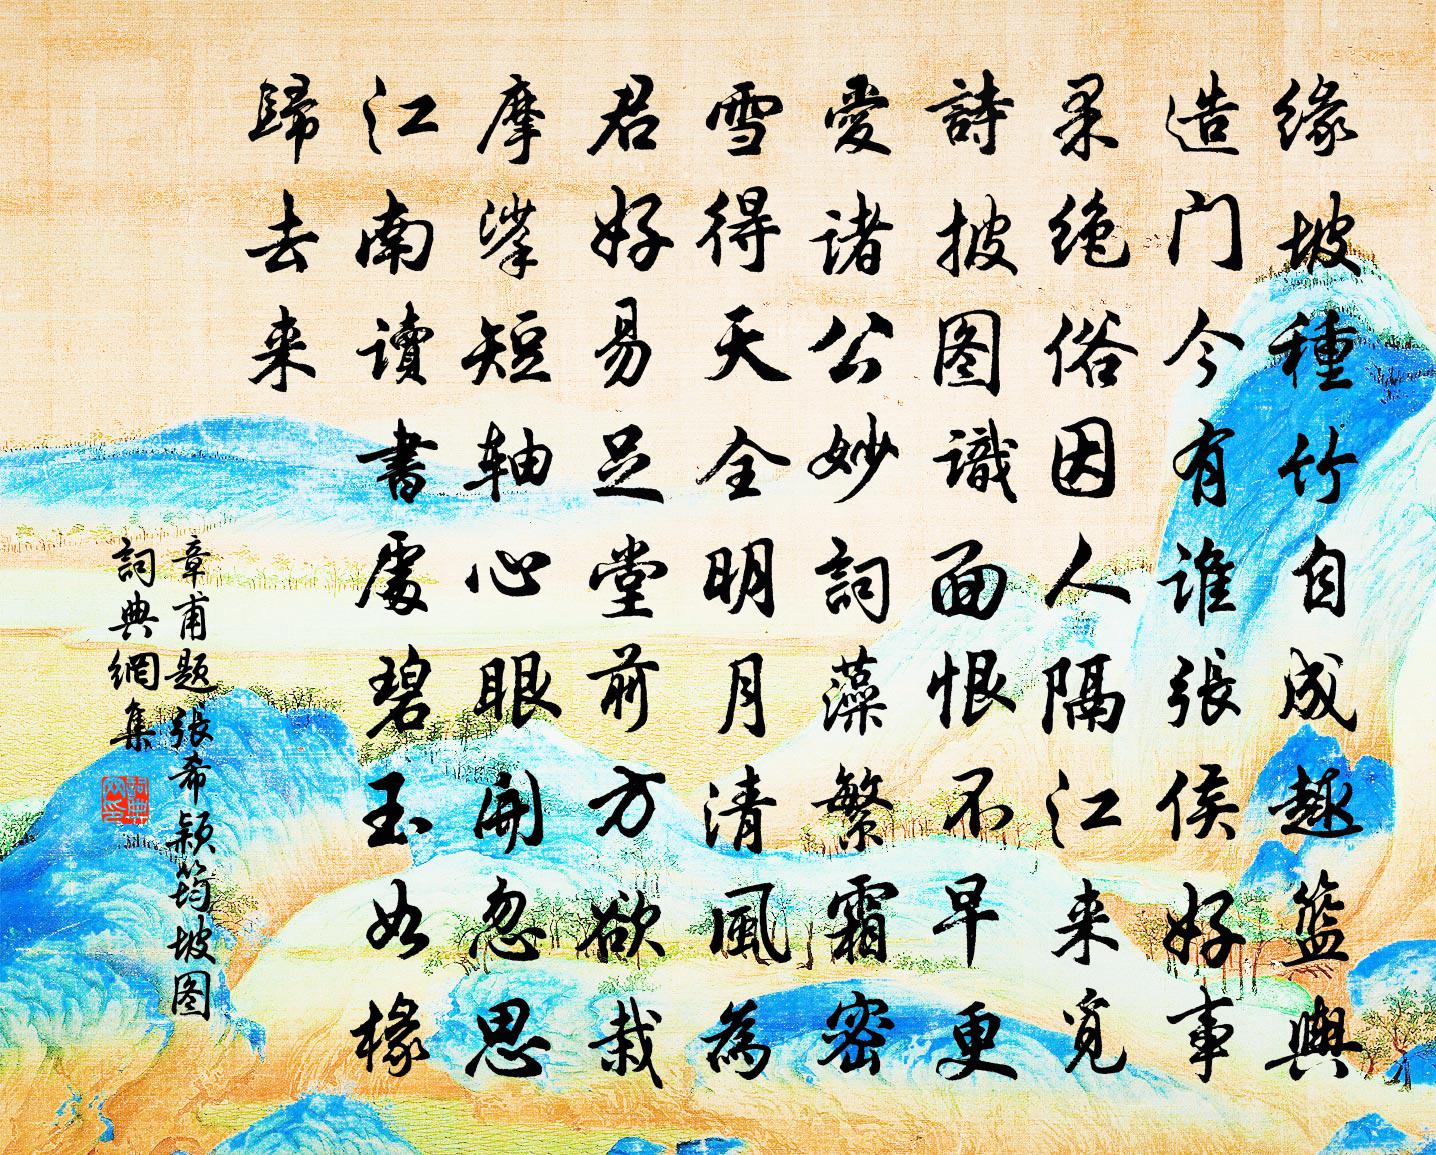 缘坡種竹自成趣籃輿
造门今有谁張侯好事
果绝俗因人隔江来觅
詩披图識面恨不早更
愛诸公妙詞藻繁霜密
雪得天全明月清風為
君好易足堂前方欲栽
摩挲短轴心眼開忽思
江南讀書處碧玉如椽
歸去来
章甫题張希颖筠坡图
詞典網集